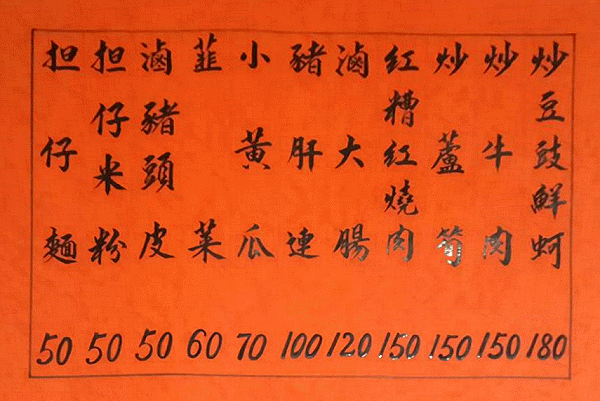 炒豆豉鮮蚵 180
炒牛肉 150
炒蘆筍 150
紅糟紅燒肉 150
滷大腸 120
豬肝連 100
小黃瓜 70
韮菜 60
滷豬頭皮 50
担仔米粉 50
担仔麵 50